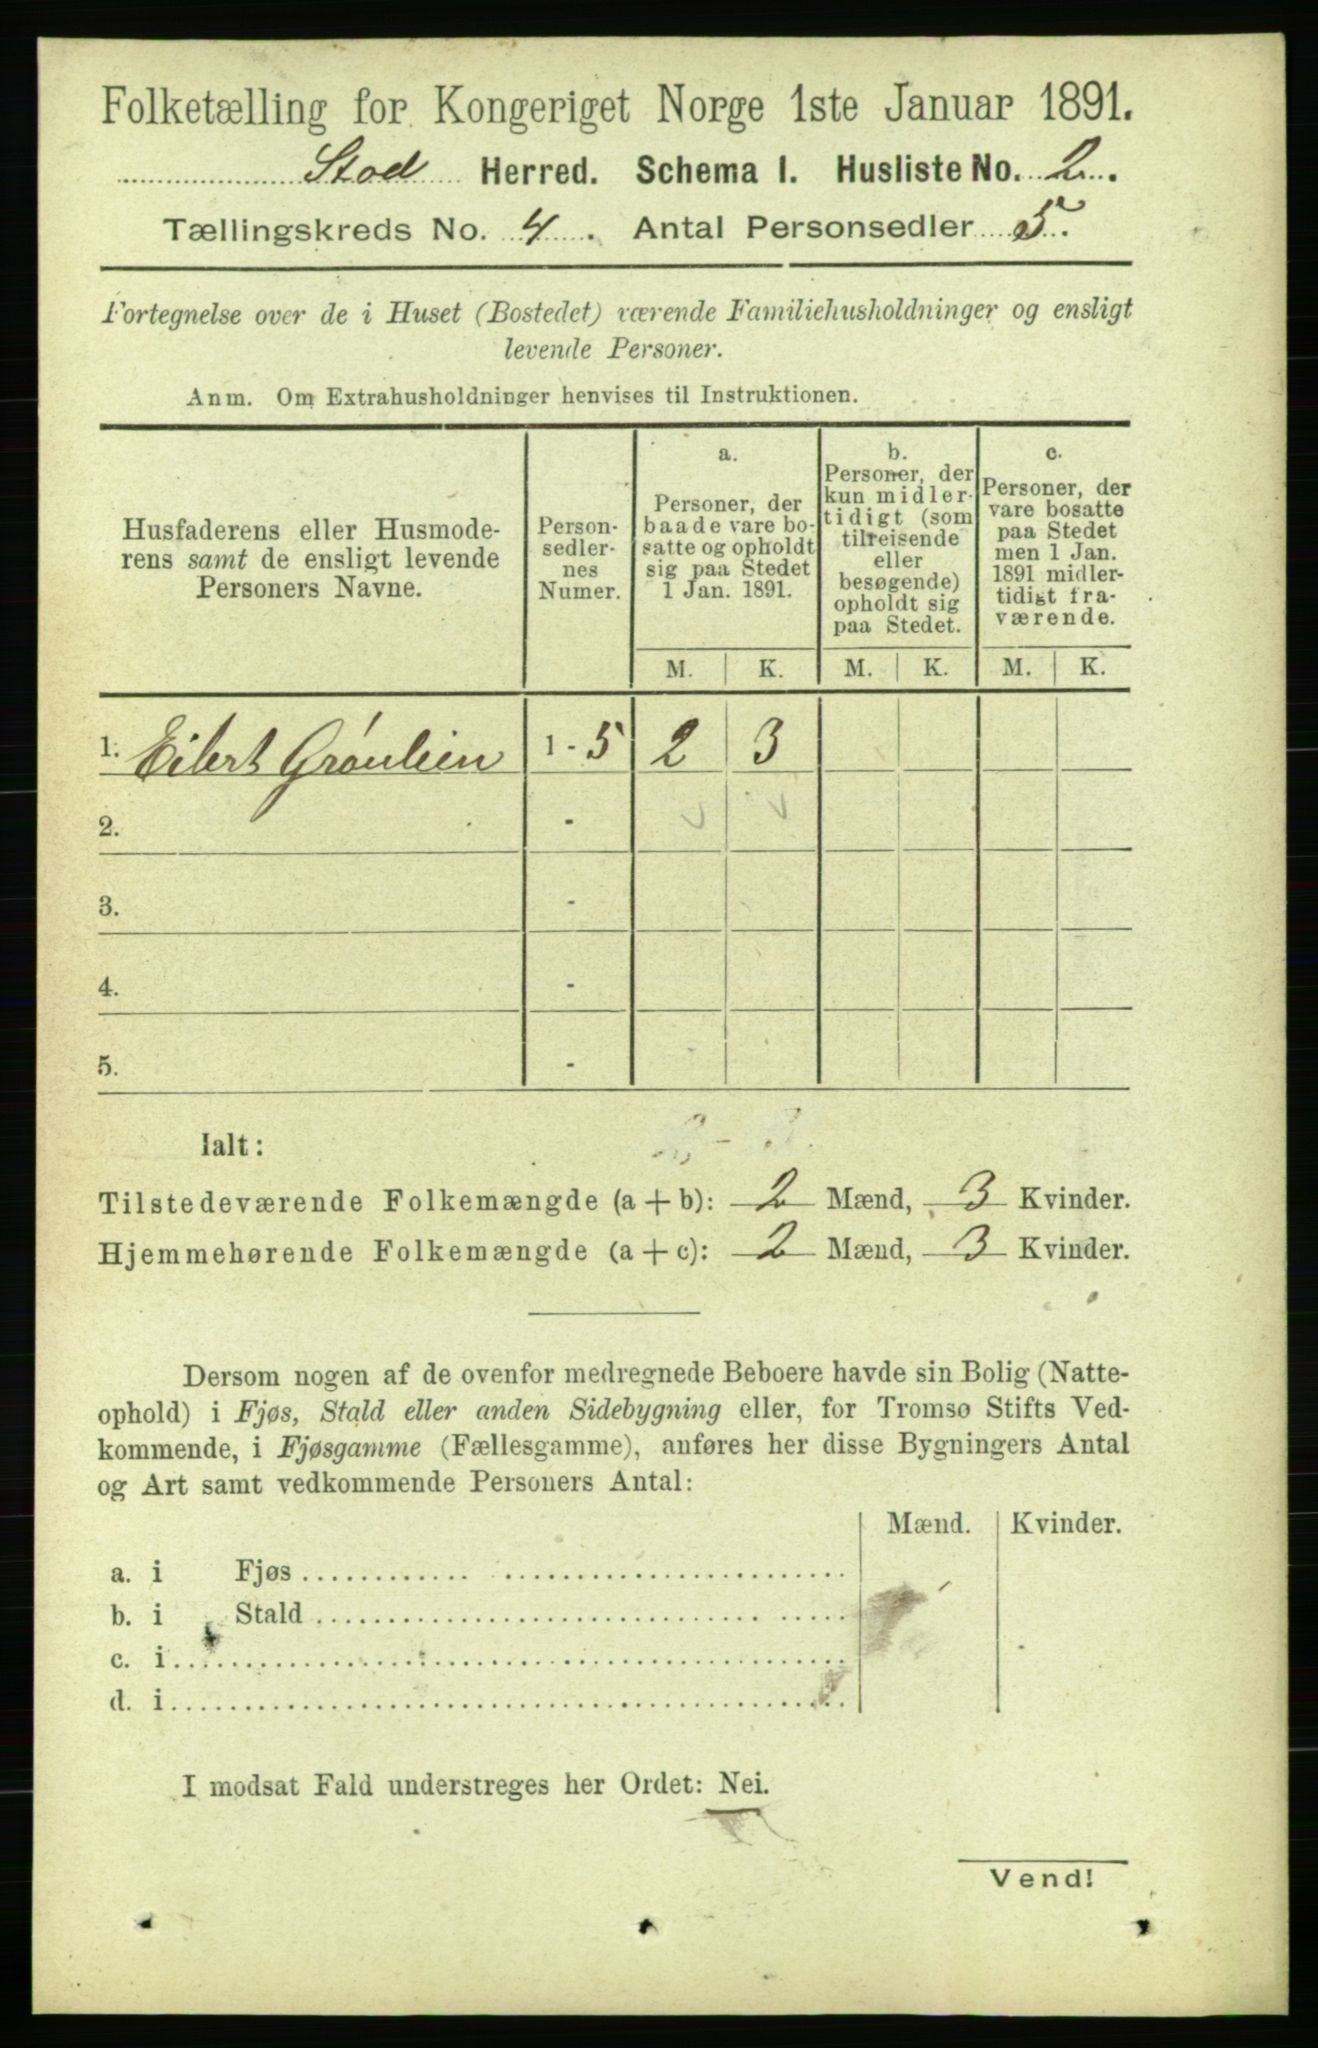 Folketælling for Kongeriget Norge 1ste Januar 1891.
Stod Herred. Schema I. Husliste No. 2.
Tællingskreds No. 4. Antal Personsedler 5.
Fortegnelse over de i Huset (Bostedet) værende Familiehusholdninger og ensligt
levende Personer.
Anm. Om Extrahusholdninger henvises til Instruktionen.
Husfaderens eller Husmode-
rens samt de ensligt levende
Personers Navne.
Person-
sedler-
nes
Numer.
a.
Personer, der
baade vare bo-
satte og opholdt
sig paa Stedet
1 Jan. 1891.
b.
Personer, der
kun midler-
tidigt (som
tilreisende
eller
besøgende)
opholdt sig
paa Stedet.
c.
Personer, der
vare bosatte
paa Stedet
men 1 Jan.
1891 midler-
tidigt fra-
værende.
M. K. M. K. M. K.
1. Eilert Grønlien 1 - 5 2 3
2. -
3. -
4. -
5. -
Ialt:
2 - 3
Tilstedeværende Folkemængde (a + b): 2 Mænd, 3 Kvinder.
Hjemmehørende Folkemængde (a + c): 2 Mænd, 3 Kvinder.
Dersom nogen af de ovenfor medregnede Beboere havde sin Bolig (Natte-
ophold) i Fjøs, Stald eller anden Sidebygning eller, for Tromsø Stifts Ved-
kommende, i Fjøsgamme (Fællesgamme), anføres her disse Bygningers Antal
og Art samt vedkommende Personers Antal:
Mænd. Kvinder.
a. i Fjøs
b. i Stald
c. i
d. i
I modsat Fald understreges her Ordet: Nei.
Vend!